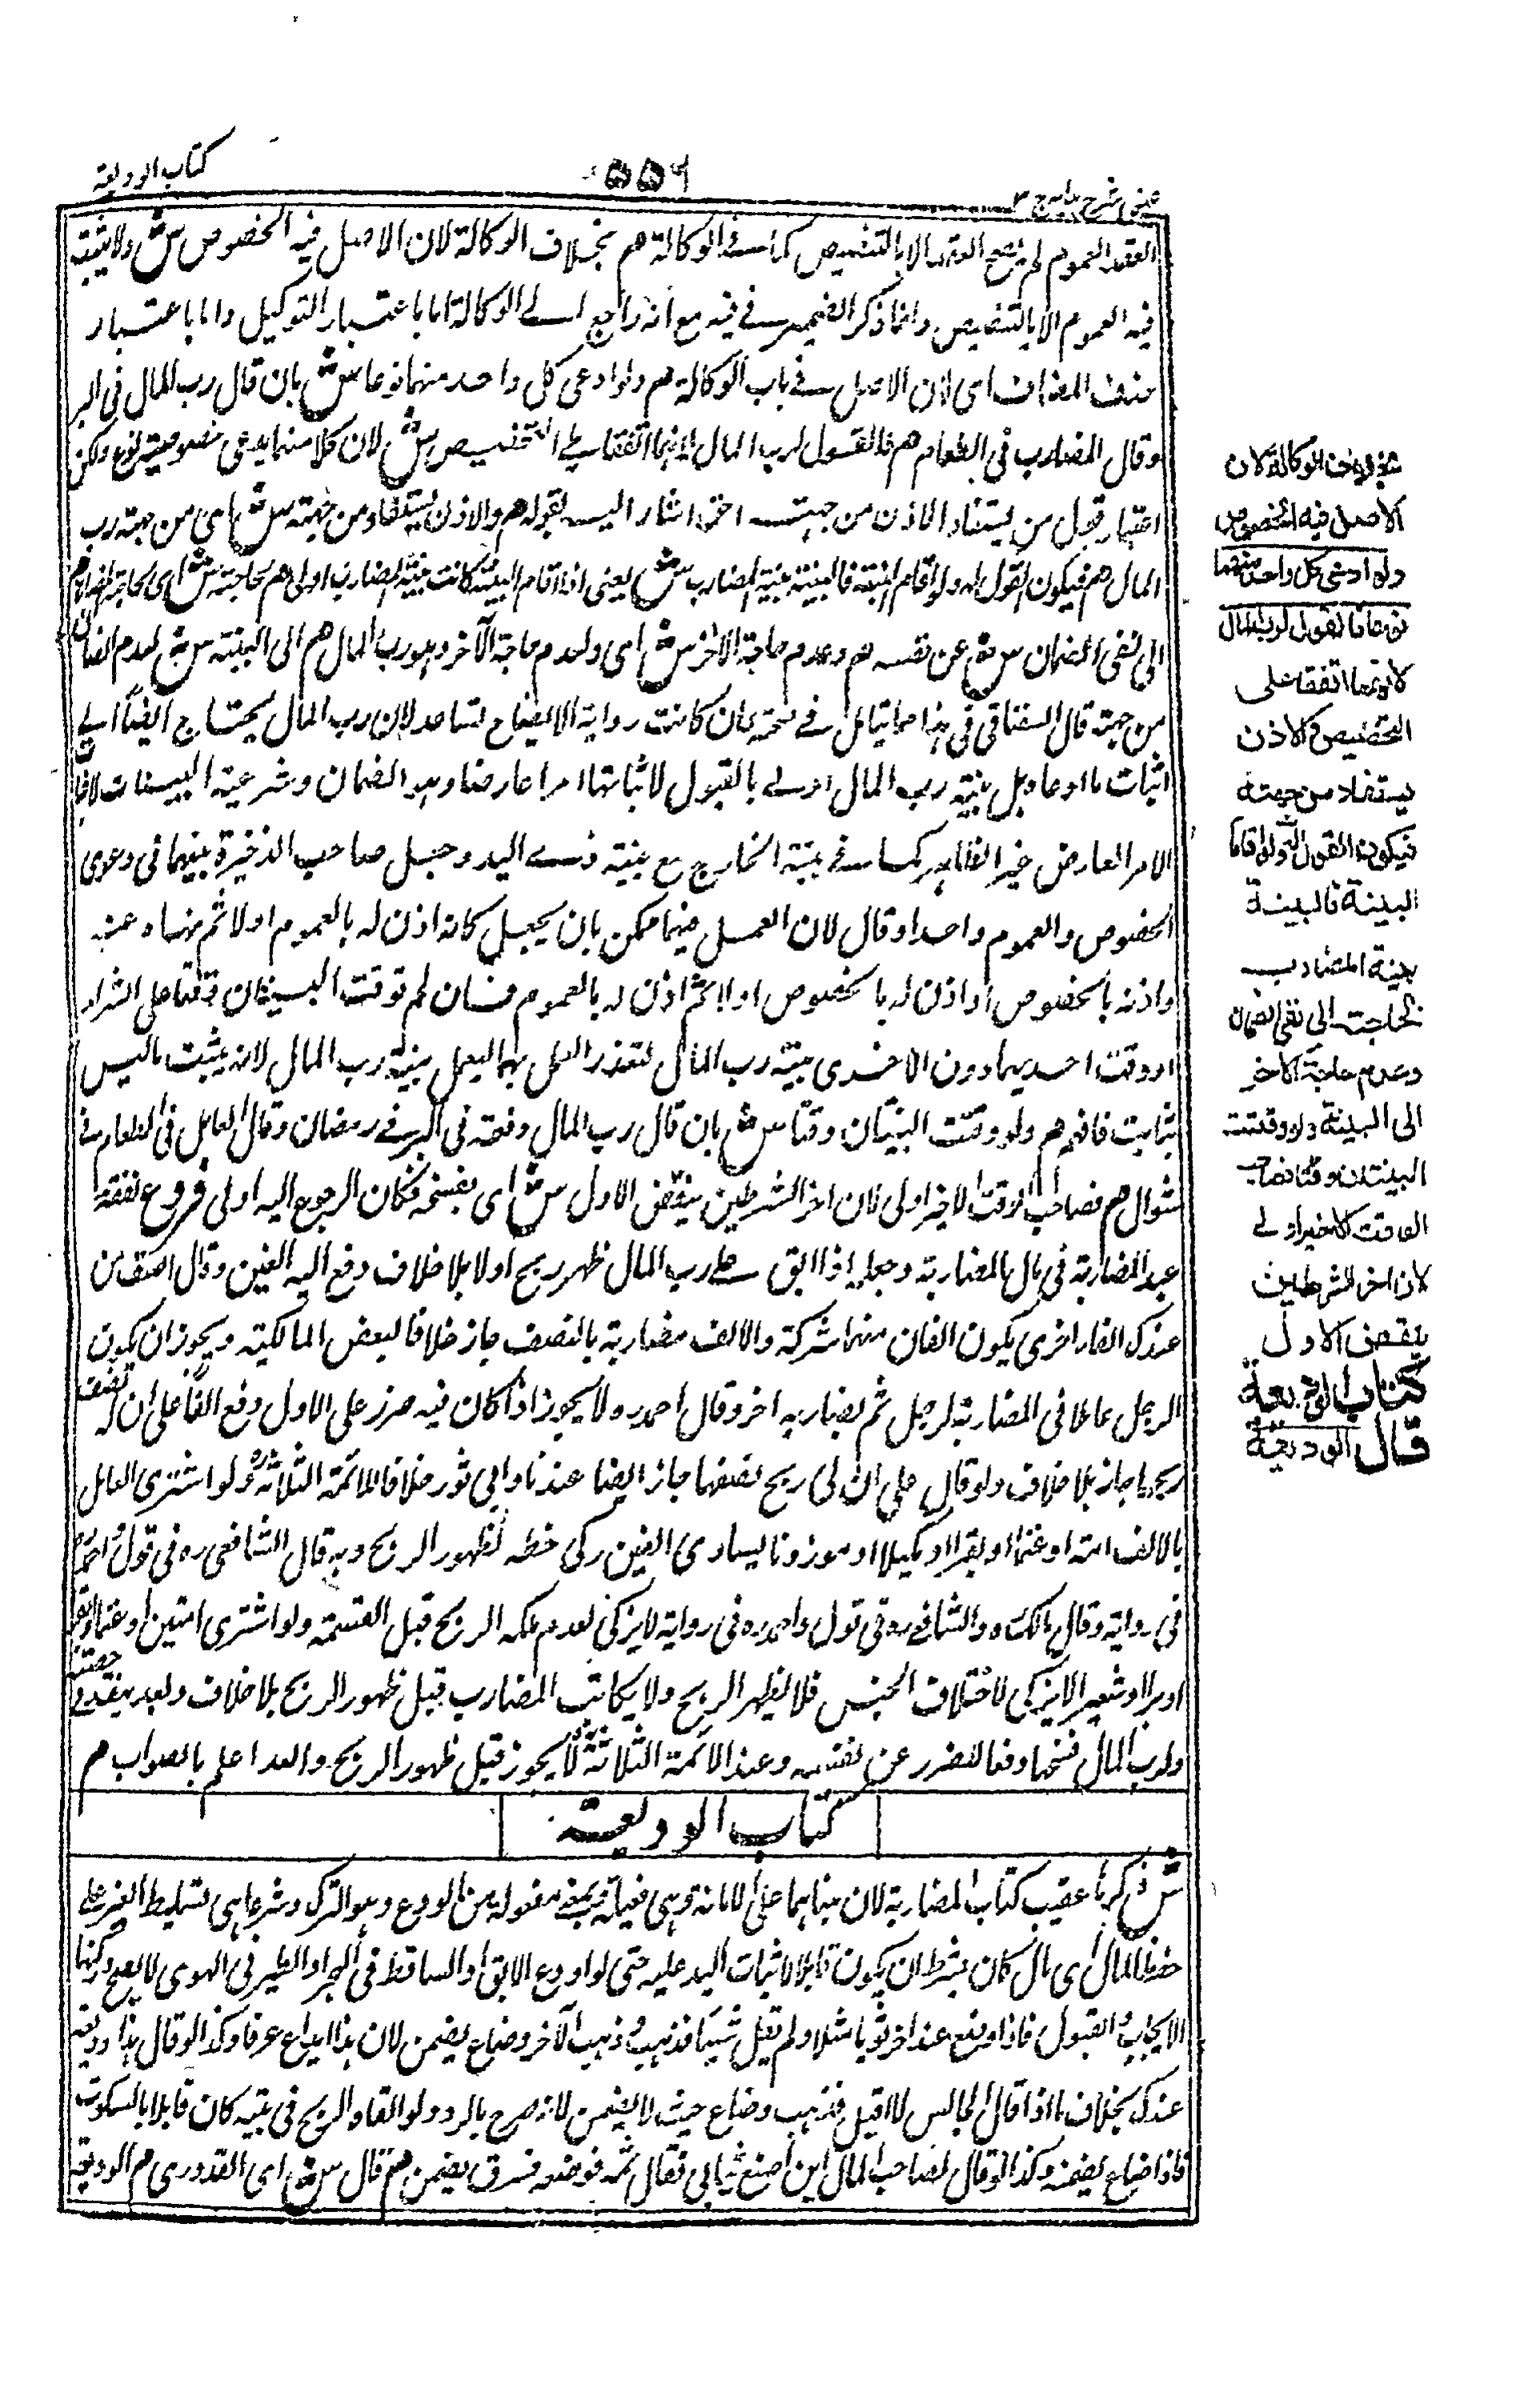 عينى شرح هدايه ج ٣
٥٥٦
كتاب الوديعة
العقد العموم لم يصح العقد الا بالتنصيص كما فى الوكالة هم بخلاف الوكالة لان الاصل فيه الخصوص ش ولا يثبت
فيه العموم الا بالتنصيص وانما ذكر الضمير فى فيه مع انه راجع الى الوكالة اما باعتبار التوكيل واما باعتبار
حذف المضاف اى لان الاصل فى باب الوكالة هم ولو ادعى كل واحد منهما نوعا ش بان قال رب المال فى البز
وقال المضارب فى الطعام هم فالقول لرب المال لانهما اتفقا على التخصيص ش لان كلا منهما يدعى خصوصية نوع ولكن
اعتبار قول من يستفاد الاذن من جهته احق اشار اليه بقوله هم والاذن يستفاد من جهته ش اى من جهة رب
المال هم فيكون القول له ولو اقاما البينة فالبينة بينة المضارب ش يعنى اذا اقاما البينة كانت بينة المضارب اولى هم لحاجته ش اى لحاجة المضارب هم
الى نفى الضمان ش عن نفسه هم وعدم حاجة الآخر ش اى ولعدم حاجة الآخر وهو رب المال هم الى البينة ش لعدم الضمان
من جهة قال السغناقى فى هذا ما يتأمل فى صحته وان كانت رواية الايضاح تساعد لان رب المال يحتاج ايضا الى
اثبات ما ادعاه بل بينة رب المال اولى بالقبول لاثباتها امرا عارضا وهو الضمان وشرعية البينات لاثبات
الامر العارض غير الظاهر كما فى بينة الخارج مع بينة ذى اليد وجعل صاحب الذخيرة بينهما فى دعوى
الخصوص والعموم واحدا وقال لان العمل فيهما ممكن بان يجعل كانه اذن له بالعموم اولا ثم نهاه عنه
واذنه بالخصوص او اذن له بالخصوص اولا ثم اذن له بالعموم فان لم توقت البينتان وقتا على الشراء
او وقت احديهما دون الاخرى بينة رب المال لتعذر العمل بهما ليعمل ببينة رب المال لانه يثبت ما ليس
بثابت فافهم هم ولو وقتت البينتان وقتا ش بان قال رب المال دفعته فى البز فى رمضان وقال العامل فى الطعام فى
شوال هم فصاحب الوقت الاخير اولى لان اخر الشرطين ينقض الاول ش اى يفسخه فكان الرجوع اليه اولى فروع نفقة
عبد المضاربة فى مال المضاربة وجعله اذا ابق على رب المال ظهر ربح اولا بلا خلاف دفع اليه الفين وقال اضف من
عندك الفا اخرى يكون الفان منهما شركة والالف مضاربة بالنصف جاز خلافا لبعض المالكية ويجوز ان يكون
الرجل عاملا فى المضاربة لرجل ثم يضاربه اخر وقال احمد ره لا يجوز اذا كان فيه ضرر على الاول دفع الفا على ان له نصف
ربحها جاز بلا خلاف ولو قال على ان لى ربح نصفها جاز ايضا عندنا وابى ثور خلافا للائمة الثلاثة ولو اشترى العامل
بالالف امة او غنما او بقرا او مكيلا او موزونا يساوى الفين زكى حظه لظهور الربح وبه قال الشافعى ره فى قول واحمد
فى رواية وقال مالك ره والشافعى ره فى قول واحمد ره فى رواية لا يزكى لعدم ملكه الربح قبل القسمة ولو اشترى امتين او غنما وبقرا
او برا او شعيرا لا يزكى لاختلاف الجنس فلا يظهر الربح ولا يكاتب المضارب قبل ظهور الربح بلا خلاف وبعده ينفذ فى حصته
ولرب المال فسخها دفعا للضرر عن نفسه وعند الائمة الثلاثة لا يجوز قبل ظهور الربح والله اعلم بالصواب هم
كتاب الوديعة
ش ذكرها عقيب كتاب المضاربة لان مبناهما على الامانة وهى فعيلة بمعنى مفعولة من الودع وهو الترك وشرعا هى تسليط الغير على
حفظ المال اى مال كان بشرط ان يكون قابلا لاثبات اليد عليه حتى لو اودع الابق او الساقط فى البحر او الطير فى الهوى لا يصح وركنها
الايجاب والقبول فاذا وضع عند اخر ثوبا مثلا ولم يقل شيئا فذهب وذهب الآخر وضاع يضمن لان هذا ايداع عرفا وكذا لو قال هذا وديعة
عندك بخلاف ما اذا قال الجالس لا اقبل فذهب وضاع حيث لا يضمن لانه صرح بالرد ولو القاه الريح فى بيته كان قابلا بالسكوت
فاذا ضاع يضمنه وكذا لو قال لصاحب المال اين اضع ثيابى فقال ثمه فوضعه فسرق يضمن هم قال ش اى القدورى هم الوديعة
بخلاف الوكالة لان
الاصل فيه الخصوص
ولو ادعى كل واحد منهما
نوعا فالقول لرب المال
لانهما اتفقا على
التخصيص والاذن
يستفاد من جهته
فيكون القول له ولو اقاما
البينة فالبينة
بينة المضارب
لحاجته الى نفى الضمان
وعدم حاجة الاخر
الى البينة ولو وقتت
البينتان وقتا فصاحب
الوقت الاخير اولى
لان اخر الشرطين
ينقض الاول
كتاب الوديعة
قال الوديعة